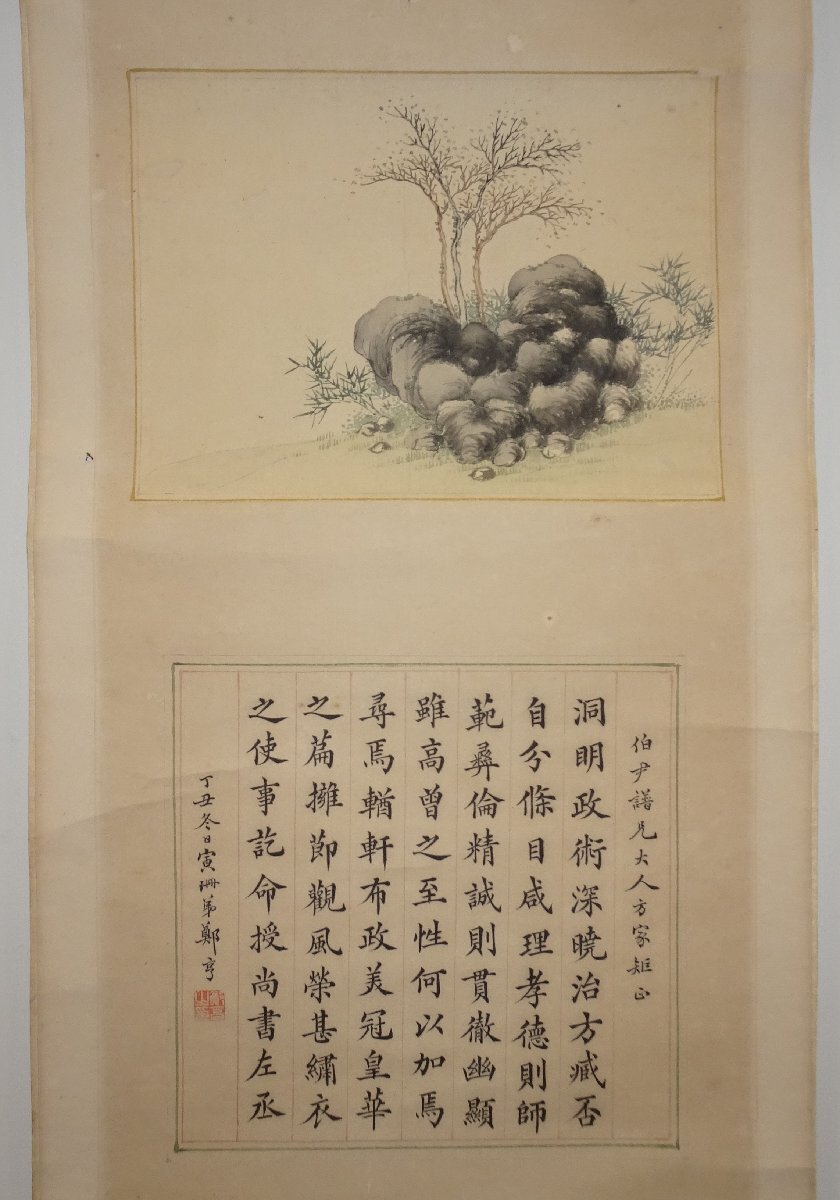 伯尹譜兄大人方家矩正
洞明政術深曉治方臧否
自分條目咸理孝德則師
範彝倫精誠則貫徹幽顯
雖高曾之至性何以加焉
尋焉輶軒布政美冠皇華
之篇擁節觀風榮甚繡衣
之使事訖命授尚書左丞
丁丑冬日寅珊弟鄭亨